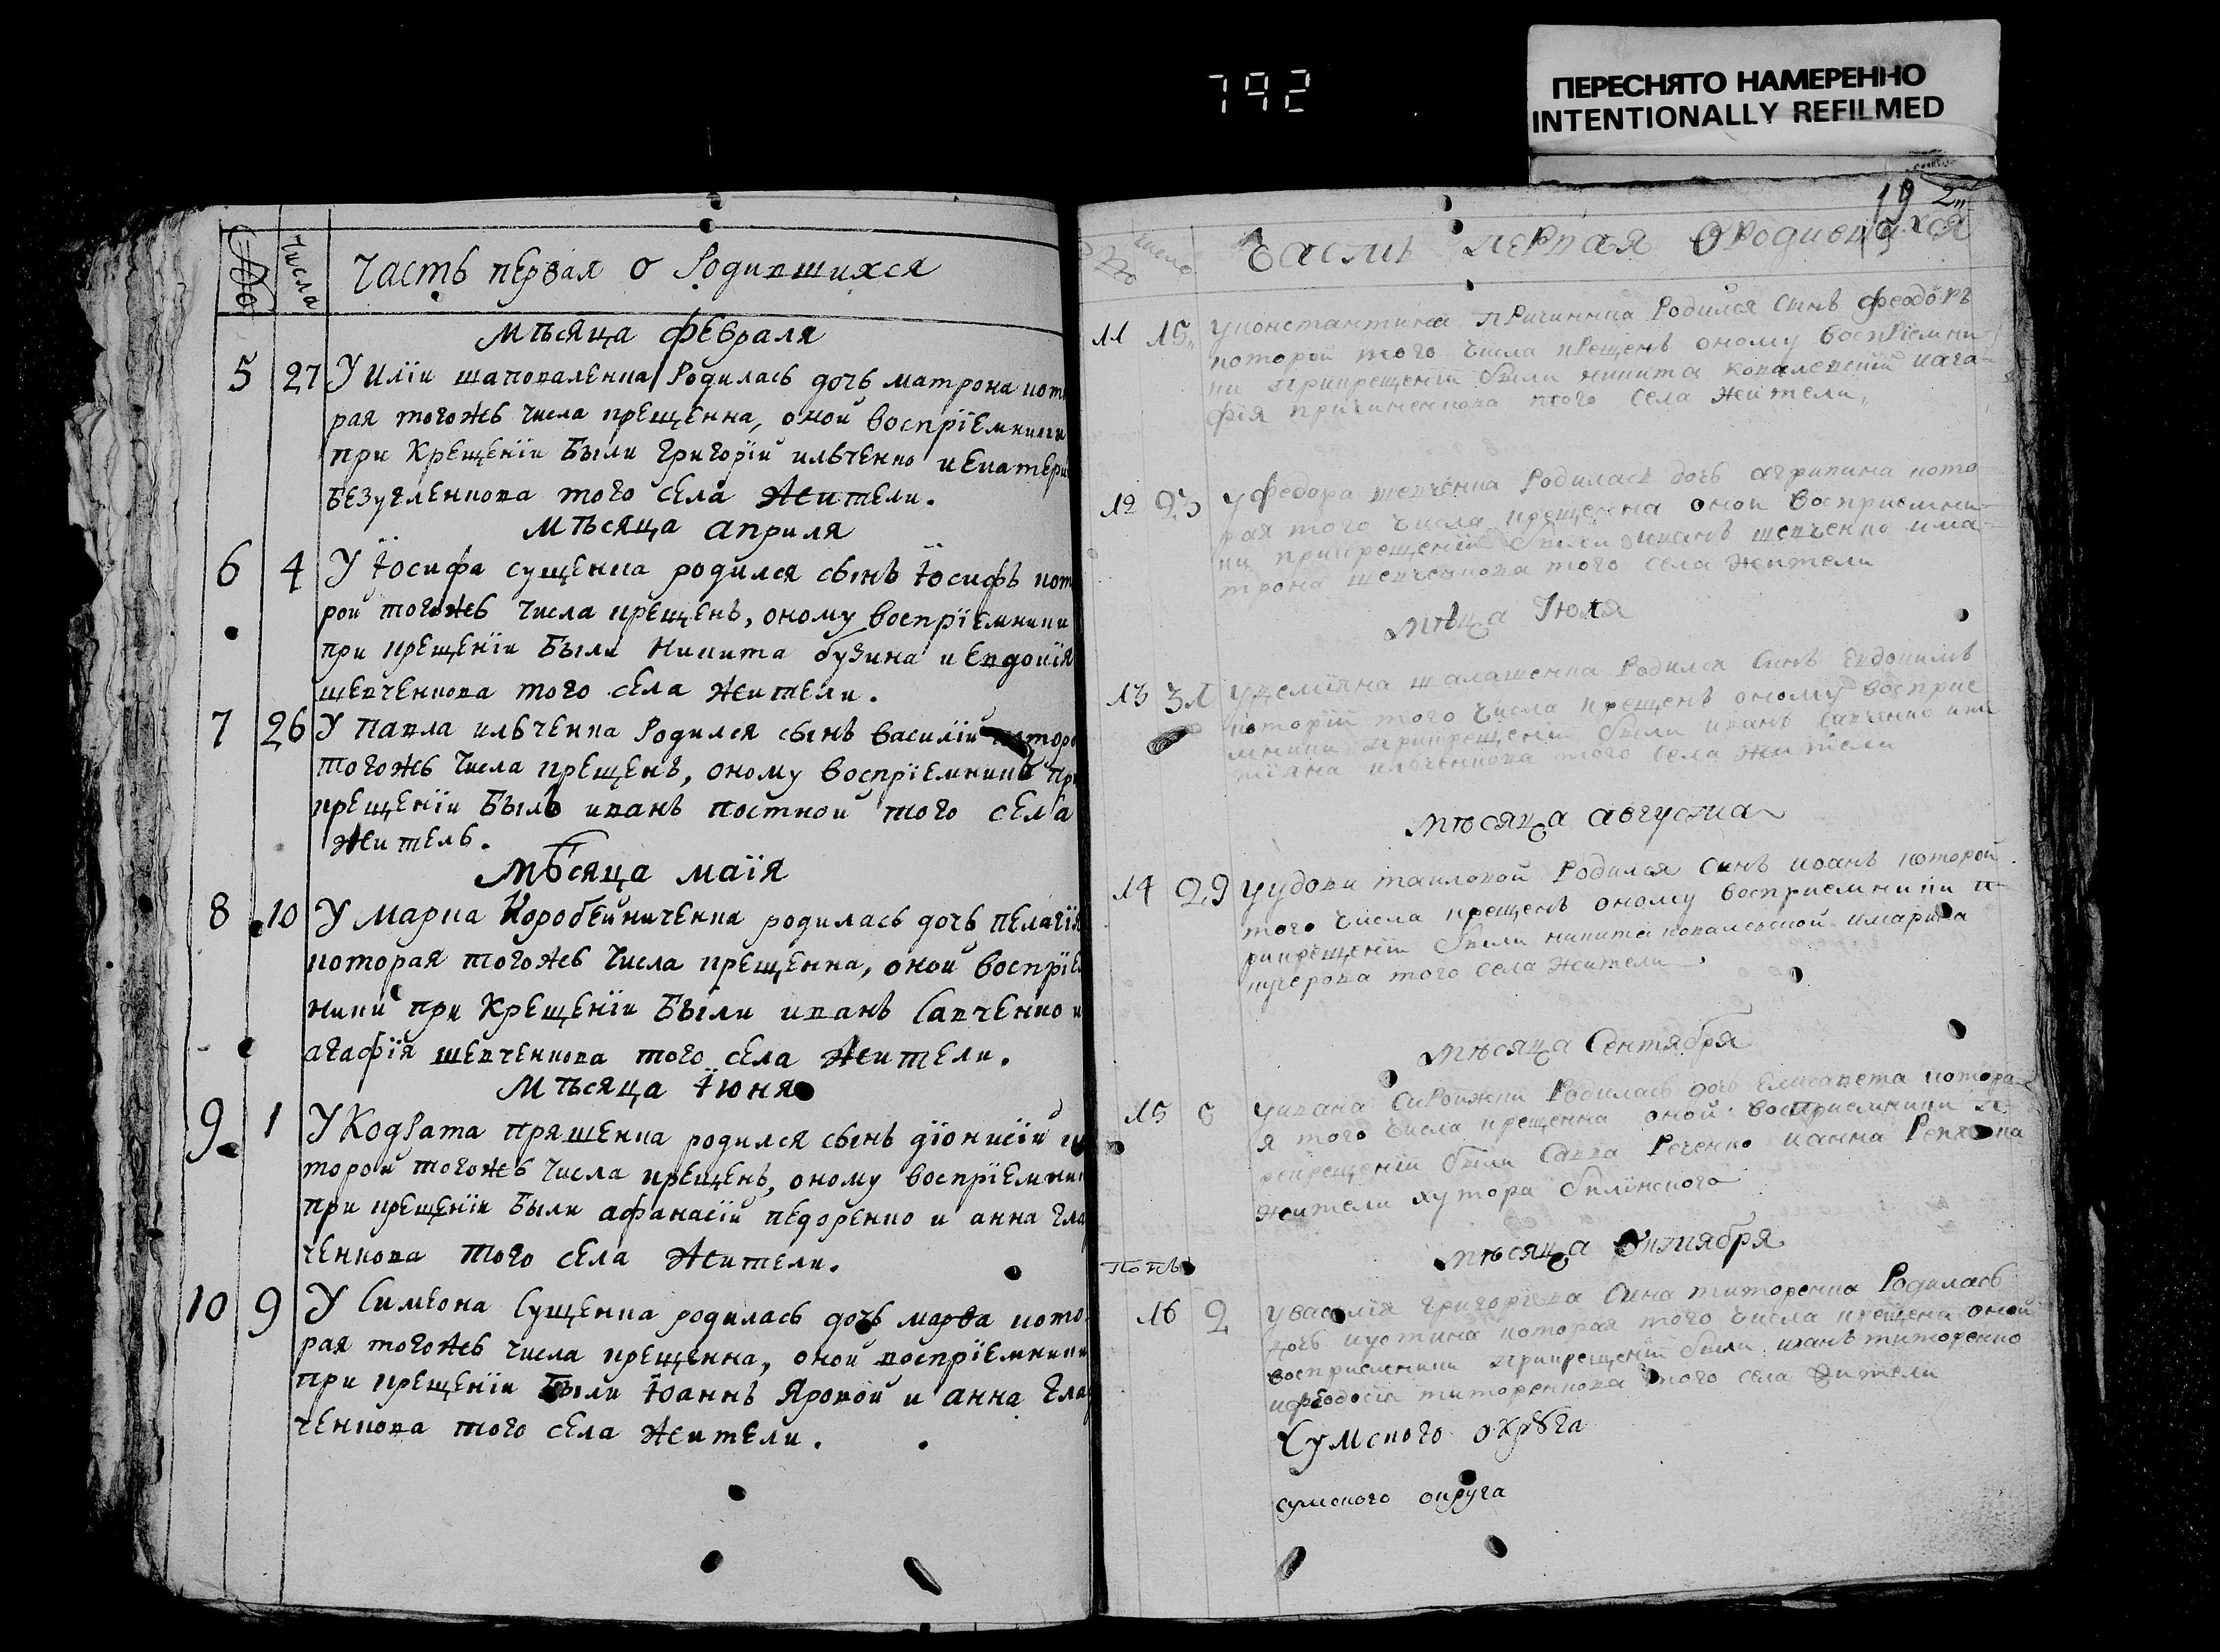 792
ПЕРЕСНЯТО НАМЕРЕННО
INTENTIONALLY REFILMED
Числа
часть первая о Родившихся
мѣсяца февраля
5 27 У Илїи шаповаленка Родилась дочь матрона кот
рая тогожъ числа крещенна, оной воспрїемники
при крещенїи были григорїй ильченко и Екатери
Безугленкова того села жители.
мѣсяца априля
6 4 У Їосифа сущенка родился сынъ Їосифъ кот
рой тогожъ числа крещенъ, оному воспрїемники
при крещенїи были Никита бузина и Евдокїя
шевченкова того села жители.
7 26 У Павла ильченка Родился сынъ василїй которо
тогожъ числа крещенъ, оному воспрїемникъ пр
крещенїи былъ иванъ постной того села
житель.
Мѣсяца маїя
8 10 У Марка Коробейниченка родилась дочь пелагїя
которая тогожъ числа крещенна, оной воспрїе
ники при крещенїи были иванъ Савченко и
агафїя шевченкова того села жители.
мѣсяца їюня
9 1 У Кодрата пряшенка родился сынъ дїонисїй к
торой тогожъ числа крещенъ, оному воспрїемни
при крещенїи были афанасїй педоренко и анна гла
ченкова того села жители.
10 9 У Симеона Сущенка родилась дочь марва кото
рая тогожъ числа крещенна, оной воспрїемники
при крещенїи были Їоаннъ Яровой и анна гла
ченкова того села жители.
19 2
число
Часть первая О Родивш хся
11 15 У констанътина Причинка Родился Синъ феодоръ
которой того числа крещенъ оному воспрїемни
ки прикрещенїи были никита ковалевскїй иага
фїя причиненкова того села жители,
12 23 У федора шевченка Родилась дочь агрипина кото
рая того числа крещенна оной восприемни
ки прикрещенїи были иванъ шевченко има
трона шевченкова того села жители
мѣца Їюля
13 31 У демїяна шалашенка Родился Синъ Евдокимъ
которїй того числа крещенъ оному восприе
мники прикрещенїи были иванъ Савченко
тїяна ильченкова того села жители
мѣсяца августа
14 29 У удови таиловой Родился Синъ иоанъ которой
того числа крещенъ оному восприемники п
рикрещенїи были никита ковалевской имарфа
кучерова того села жители
мѣсяца Сентября
15 У ивана Сироижки Родилась дочь Елисавета котора
я того числа крещенна оной восприемники п
рикрещенїи были Савва Реченко ианна
жители хутора билїнского
мѣсяца Октиября
16 2 У василїя григорїева Сина титоренка Родилась
дочь иустина которая того числа крещена оной
восприемники прикрещенїи были иванъ титоренко
ифеодосїа титоренкова того села жители
Сумского округа
сумского округа